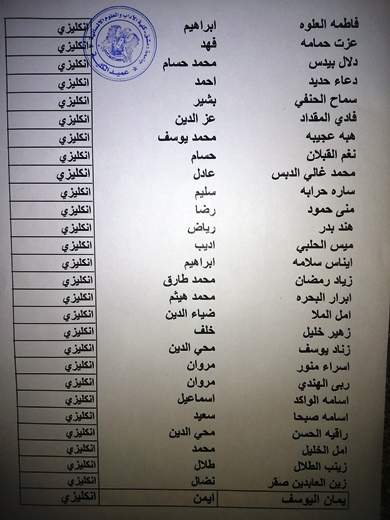 فاطمه العلوه ابراهيم انكليزي
عزت حمامه فهد انكليزي
دلال بيدس محمد حسام انكليزي
دعاء حديد احمد انكليزي
سماح الحنفي بشير انكليزي
فادي المقداد عز الدين انكليزي
هبه عجيبه محمد يوسف انكليزي
نغم القبلان حسام انكليزي
محمد غالي الدبس عادل انكليزي
ساره حرابه سليم انكليزي
منى حمود رضا انكليزي
هند بدر رياض انكليزي
ميس الحلبي اديب انكليزي
ايناس سلامه ابراهيم انكليزي
زياد رمضان محمد طارق انكليزي
ابرار البحره محمد هيثم انكليزي
امل الملا ضياء الدين انكليزي
زهير خليل خلف انكليزي
زناد يوسف محي الدين انكليزي
اسراء منور مروان انكليزي
ربى الهندي مروان انكليزي
اسامه الواكد اسماعيل انكليزي
اسامه صبحا سعيد انكليزي
راقيه الحسن محي الدين انكليزي
امل الخليل محمد انكليزي
زينب الطلال طلال انكليزي
زين العابدين صقر نضال انكليزي
يمان اليوسف ايمن انكليزي